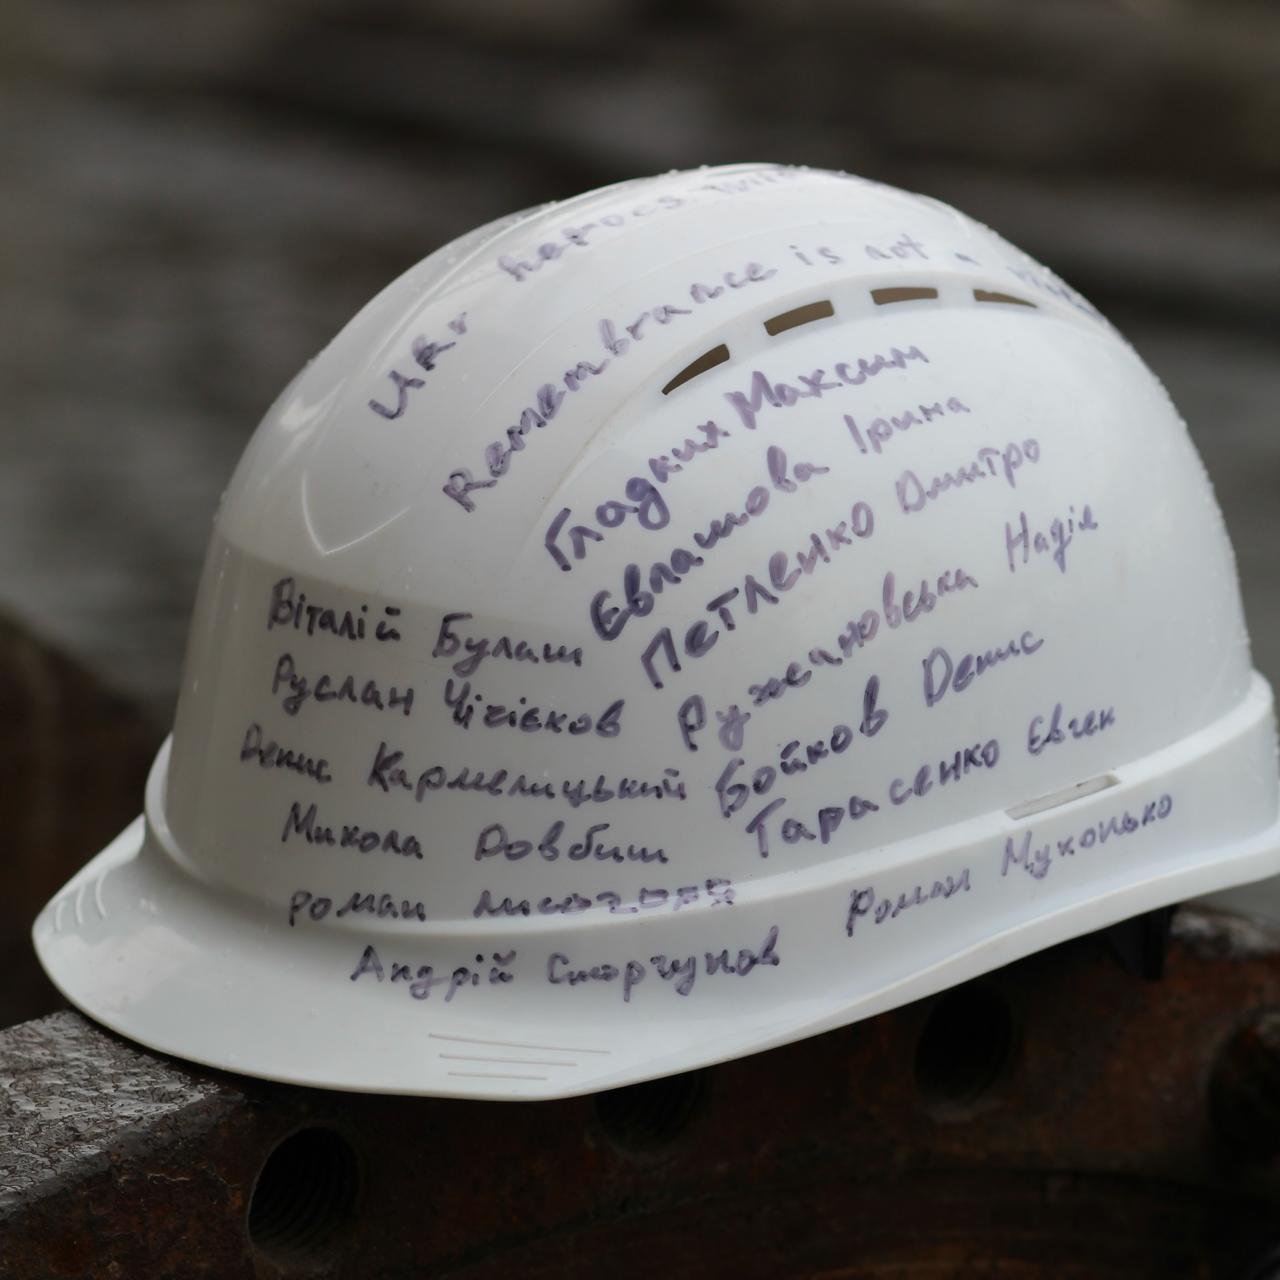 Ukr heroes.
Remembrance is not a
Гладких Максим
Євлашова Ірина
Петленко Дмитро
Ружановська Надія
Бойков Денис
Тарасенко Євген
Роман Мухонько
Віталій Булаш
Руслан Чічієков
Денис Кармелицький
Микола Довбиш
роман
Андрій Сморчунов